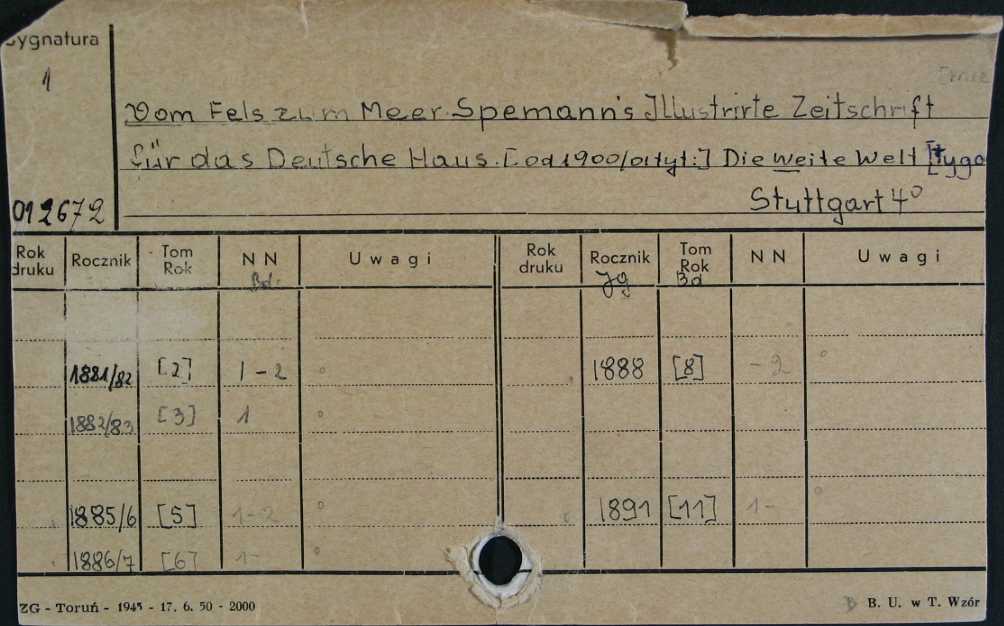 Sygnatura
1
Vom Fels zum Meer. Spemann's Illustrirte Zeitschrift
für das Deutsche Haus. [od 1900/01 tyt:] Die weite Welt [tygo
Stuttgart 4°
012672
Rok druku Rocznik Tom Rok NN Uwagi Rok druku Rocznik Tom Rok NN Uwagi
Bd. Jg Bd
1881/82 [2] 1-2 1888 [8] -2
1882/83 [3] 1
1885/6 [5] 1-2 1891 [11] 1-
1886/7 [6] 1-
ZG - Toruń - 1945 - 17. 6. 50 - 2000 B. U. w T. Wzór